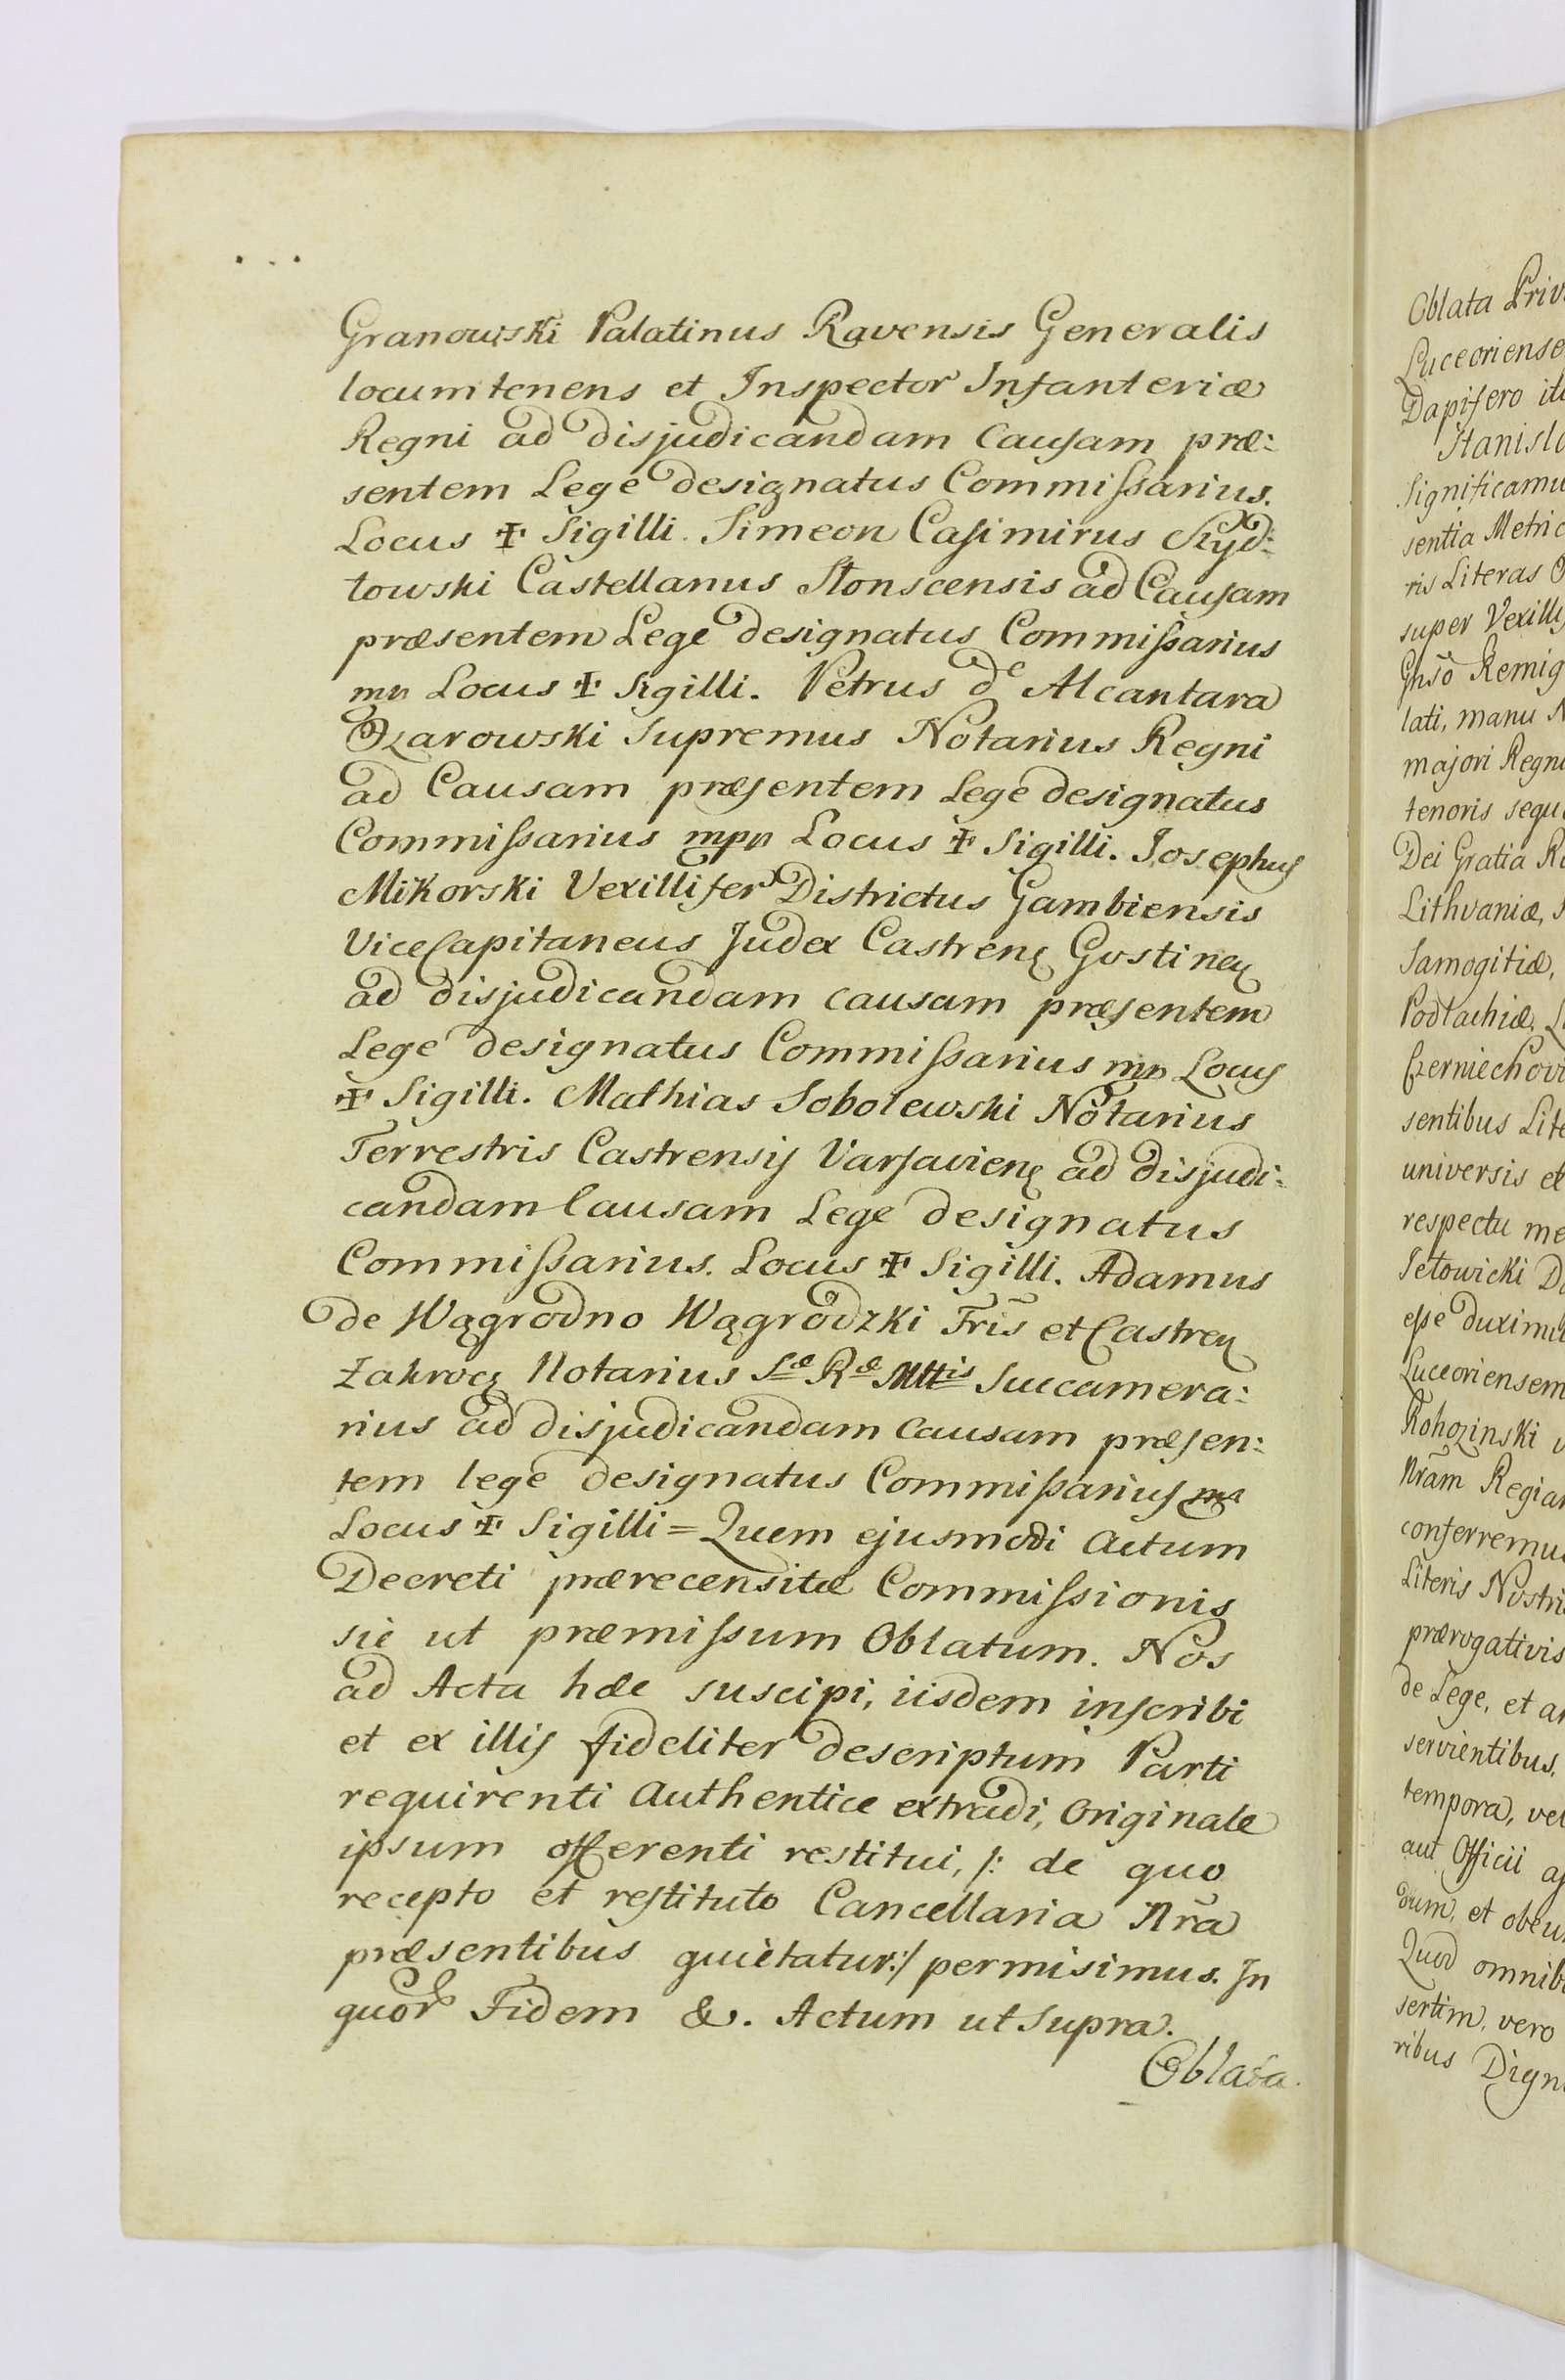 Granowski Palatinus Ravensis Generalis
locumtenens et Inspector Infanteriæ
Regni ad disjudicandam Causam præ:
sentem Lege designatus Commissarius.
Locus ✠ Sigilli. Simeon Casimirus Szyd:
towski Castellanus Słonscensis ad Causam
præsentem Lege designatus Commissarius
mp Locus ✠ Sigilli. Petrus de Alcantara
Ożarowski Supremus Notarius Regni
ad Causam præsentem Lege designatus
Commissarius mpp Locus ✠ Sigilli. Josephus
Mikorski Vexillifer Districtus Gambiensis
ViceCapitaneus Judex Castren Gostinen
ad disjudicandam causam præsentem
Lege designatus Commissarius mp Locus
✠ Sigilli. Mathias Sobolewski Notarius
Terrestris Castrensis Varsavien ad disjudi:
candam Causam Lege designatus
Commissarius. Locus ✠ Sigilli. Adamus
de Wągrodno Wągrodzki Tris̃ et Castren
Zakrocz Notarius Sæ Ræ Mttis Succamera:
rius ad disjudicandam causam præsen:
tem lege designatus Commissarius mp
Locus ✠ Sigilli = Quem ejusmodi actum
Decreti prærecensitæ Commissionis
sic ut præmissum Oblatum. Nos
ad Acta hæc suscipi, iisdem inscribi
et ex illis fideliter descriptum Parti
requirenti Authentice extradi, Originale
ipsum offerenti restitui, /: de quo
recepto et restituto Cancellaria Nr̃a
præsentibus quietatur :/ permisimus. In
quor Fidem &. Actum ut Supra.
Oblata.
Oblata Priv
Luceoriense
Dapifero it
Stanisla
Significamu
sentia Metric
ris Literas O
super Vexilly
Gnsõ Remig
lati, manu N
majori Regni
tenoris sequ
Dei Gratia R
Lithvaniæ, S
Samogitiæ,
Podlachiæ, L
Czerniechov
sentibus Lite
universis et
respectu me
Jełowicki D
esse duximu
Luceoriensem
Rohozinski v
Nr̃am Regiam
conferremus
Literis Nostri
prærogativis
de Lege, et a
servientibus,
tempora, vel
aut Officii a
dum, et obeu
Quod omnib
sertim, vero
ribus Dign